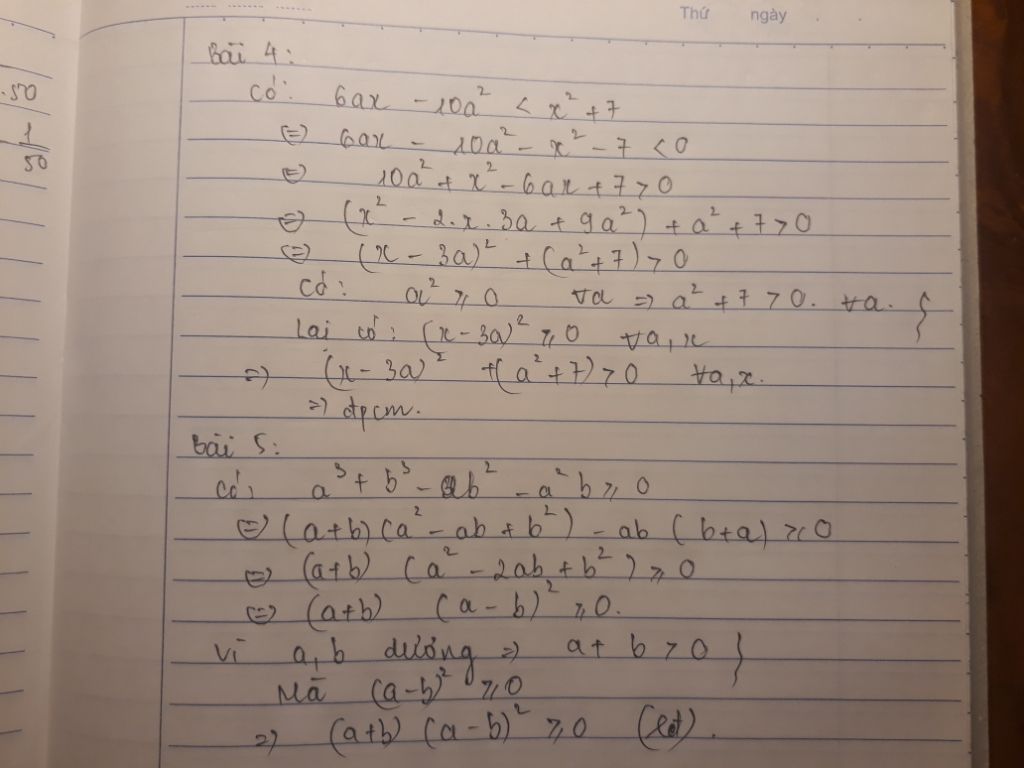 Thứ ngày
.50
1/50
Bài 4:
Có: 6ax - 10a² < x² + 7
(=) 6ax - 10a² - x² - 7 < 0
(=) 10a² + x² - 6ax + 7 > 0
(=) (x² - 2.x.3a + 9a²) + a² + 7 > 0
(=) (x - 3a)² + (a² + 7) > 0
Có: a² ⩾ 0 ∀a => a² + 7 > 0. ∀a. }
Lại có: (x - 3a)² ⩾ 0 ∀a, x
=) (x - 3a)² + (a² + 7) > 0 ∀a, x.
=) đpcm.
Bài 5:
Có: a³ + b³ - ab² - a²b ⩾ 0
(=) (a+b) (a² - ab + b²) - ab (b+a) ⩾ 0
(=) (a+b) (a² - 2ab + b²) ⩾ 0
(=) (a+b) (a - b)² ⩾ 0.
Vì a, b dương => a + b > 0 }
Mà (a-b)² ⩾ 0
=) (a+b) (a - b)² ⩾ 0